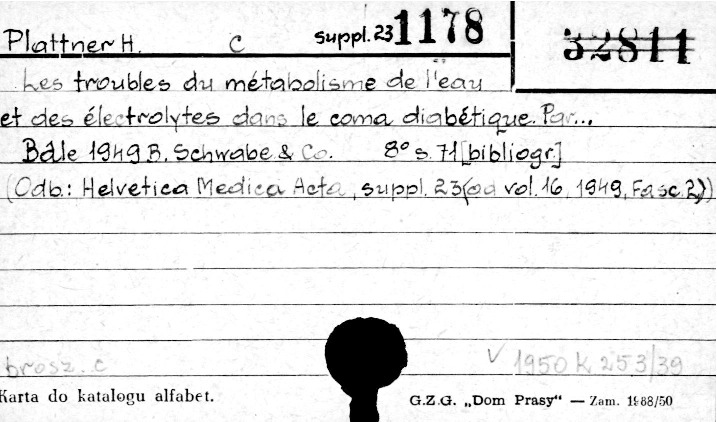 Plattner H. C suppl. 23 1178 32811
Les troubles du métabolisme de l'eau
et des électrolytes dans le coma diabétique. Par...
Bâle 1949 B. Schwabe & Co. 8° s. 71 [bibliogr.]
(Odb.: Helvetica Medica Acta, suppl. 23 (ad vol. 16, 1949, Fasc. 2))
brosz. c V 1950 K 253/39
Karta do katalogu alfabet. G.Z.G. „Dom Prasy“ — Zam. 1988/50